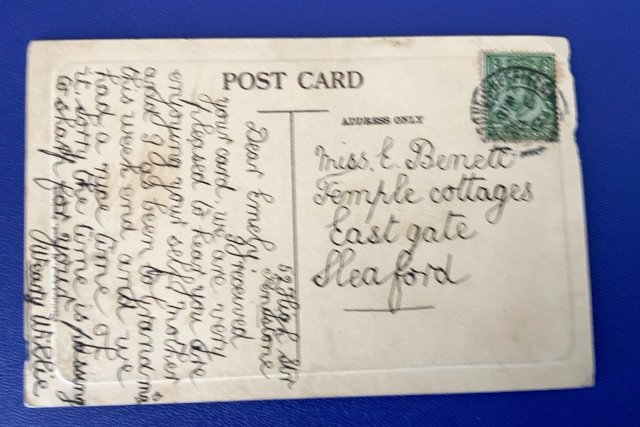 POST CARD
ADDRESS ONLY
Miss. E. Benett
Temple cottages
East gate
Sleaford
52 High Str
Dear Emely
I received
your card we are very
pleased to hear you are
enjoying your self mother
and I as been to grand ma
this week end and we
had a nice time of
it sorry the time is
to stay for you
Willie